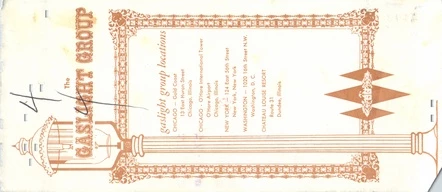 The
GASLIGHT GROUP
gaslight group locations
CHICAGO — Gold Coast
13 East Huron Street
Chicago, Illinois
CHICAGO — O'Hare International Tower
O'Hare Airport
Chicago, Illinois
NEW YORK — 124 East 56th Street
New York, New York
WASHINGTON — 1020 16th Street N.W.
Washington, D. C.
CHATEAU LOUISE RESORT
Route 31
Dundee, Illinois
4
4